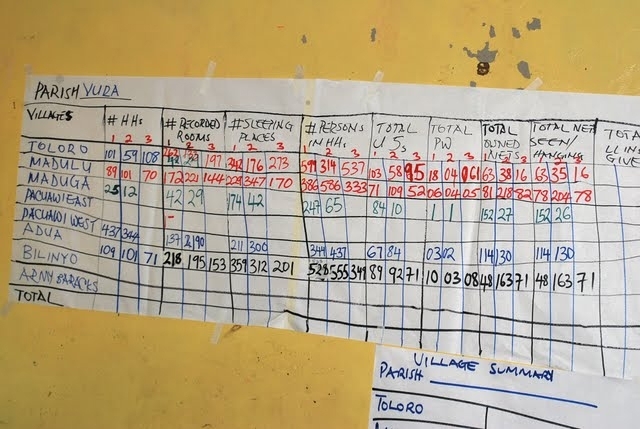 PARISH YURA
VILLAGES # HHs # RECORDED ROOMS # SLEEPING PLACES # PERSONS IN HHs TOTAL U 5s TOTAL PW TOTAL OWNED NETS TOTAL NETS SEEN/ HANGING TOTAL LLIN GIVE
1 2 3 1 2 3 1 2 3 1 2 3 1 2 3 1 2 3 1 2 3 1 2 3
TOLORO 101 59 108 197 342 176 273 314 537 103 58 95 18 04 63 38 16 63 35 16
MADULU 89 101 70 172 201 144 347 170 386 586 333 71 109 52 06 04 05 81 218 82 78 204 78
MADUGA 25 12 42 29 174 42 247 65 84 10 1 1 152 27 152 26
PACUAWI EAST
PACUAWI WEST
ADUA 437 137 190 211 300 344 437 67 84 03 02 114 130 114 130
BILINYO 109 101 71 218 195 153 359 312 201 528 555 349 89 92 71 10 03 08 48 163 71 48 163 71
ARMY BARACKS
TOTAL
VILLAGE SUMMARY
PARISH
TOLORO